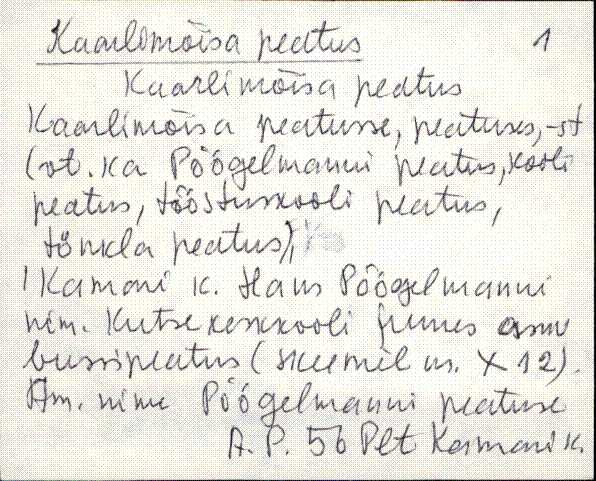 Kaarlimõisa peatus 1
Kaarlimõisa peatus
Kaarlimõisa peatusse, peatuses, -st
(vt. ka Pöögelmanni peatus, kooli
peatus, tööstuskooli peatus,
tönkla peatus),
Kamari k. Hans Pöögelmanni
nim. Kutsekeskkooli juures asuv
bussipeatus (skeemil nr. X 12).
Am. nime Pöögelmanni peatuse
A. P. 56 Plt Kamari k.